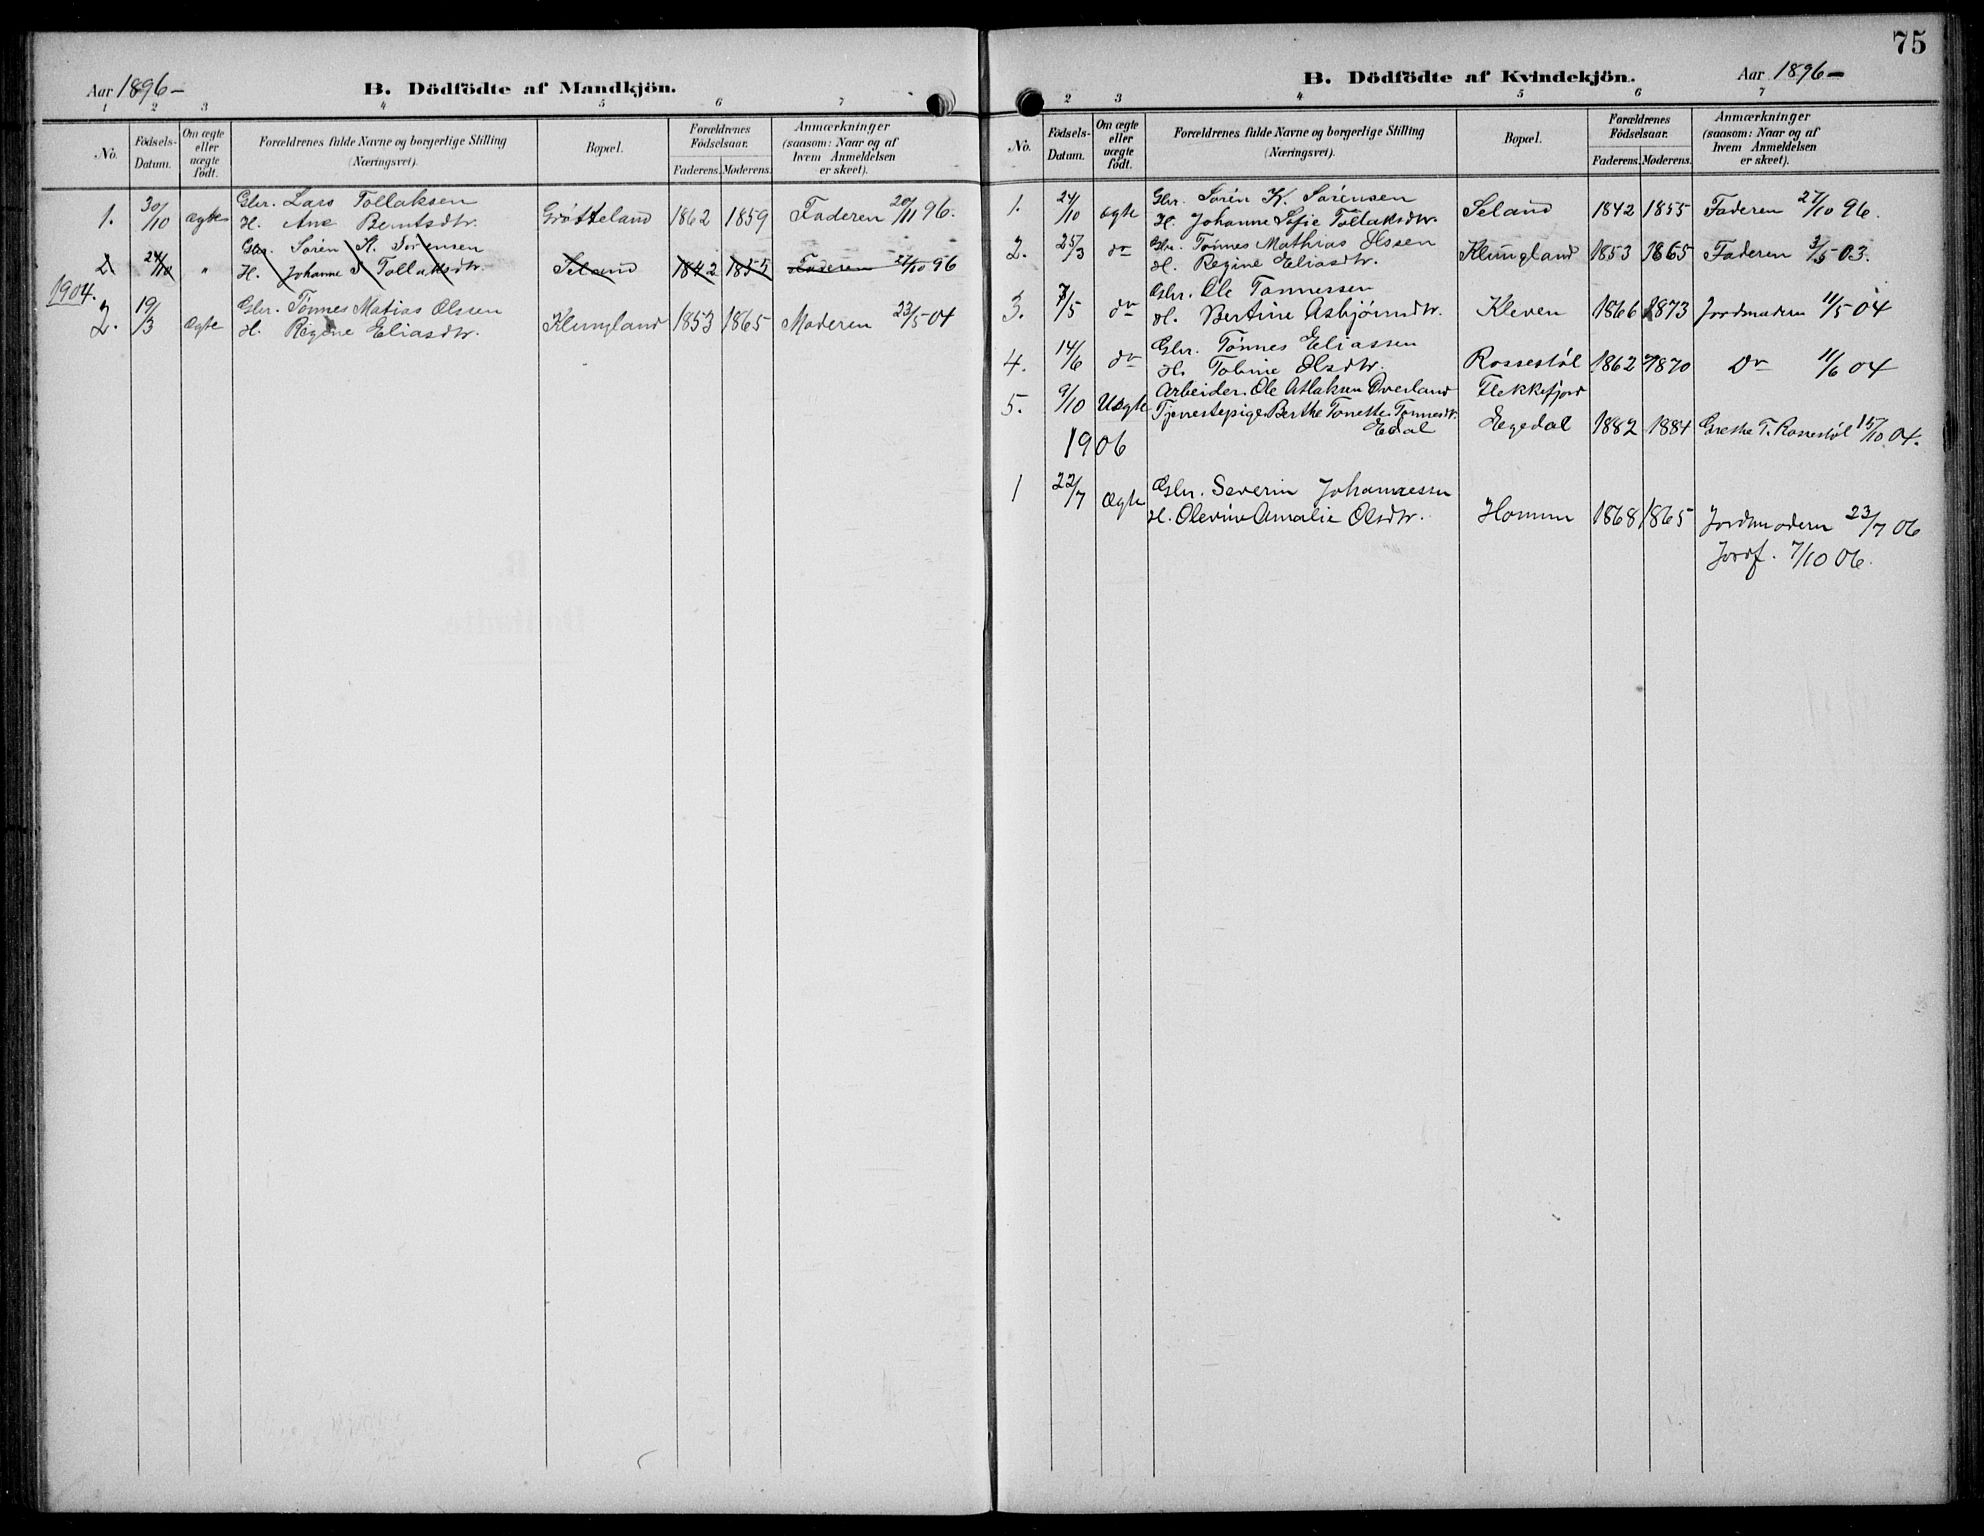 75
Aar 1896 –
B. Dödfödte af Mandkjön.
1 2 3 4 5 6 7
No.
Födsels-Datum.
Om ægte eller uægte födt.
Forældrenes fulde Navne og borgerlige Stilling (Næringsvei).
Bopæl.
Forældrenes Födselsaar.
Faderens. Moderens.
Anmærkninger (saasom: Naar og af hvem Anmeldelsen er skeet).
1. 30/10 ægte Gbr. Lars Tollaksen
H. Ane Berntsdtr. Grøtteland 1862 1859 Faderen 20/11 96.
2 24/10 " Gbr. Søren K. Sørensen
H. Johanne S Tollaksdtr. Seland 1842 1855 Faderen 27/10 96
1904.
2. 19/3 Ægte Gbr. Tønnes Matias Olssen
H. Regine Eliasdtr. Klungland 1853 1865 Moderen 23/5 04
B. Dödfödte af Kvindekjön.
Aar 1896 –
2 3 4 5 6 7
No.
Födsels-Datum.
Om ægte eller uægte födt.
Forældrenes fulde Navne og borgerlige Stilling (Næringsvei).
Bopæl.
Forældrenes Födselsaar.
Faderens. Moderens.
Anmærkninger (saasom: Naar og af hvem Anmeldelsen er skeet).
1. 24/10 ægte Gbr. Søren K. Sørensen
H. Johanne Sofie Tollaksdtr. Seland 1842 1855 Faderen 27/10 96.
2. 25/3 do Gbr. Tønnes Mathias Olssen
H. Regine Eliasdtr. Klungland 1853 1865 Faderen 3/5 03.
3. 7/5 do Gbr. Ole Tønnessen
H. Bertine Asbjørnsdtr. Kleven 1866 1873 Jordmoderen 11/5 04
4. 14/6 do Gbr. Tønnes Eliassen
H. Tobine Olsdtr. Rossestøl 1862 1870 Do 11/6 04
5. 9/10 Uægte Arbeider Ole Atlaksen Øverland Flekkefjord
Tjenestepige Berthe Tonette Tønnesdtr.
Edal Egedal 1882 1884 Grethe T. Rossestøl 15/10 04.
1906
1 22/7 Ægte Gbr. Severin Johannessen
H. Olevine Amalie Olsdtr. Homme 1868 1865 Jordmoderen 23/7 06
Jordf. 7/10 06.